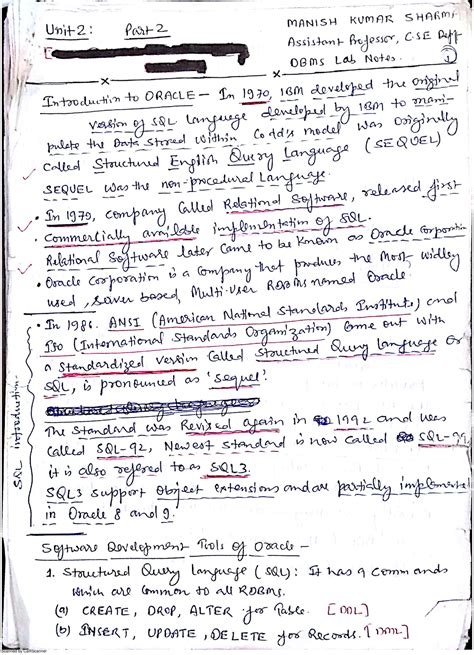 Unit 2: Part 2
MANISH KUMAR SHARMA
Assistant Professor, CSE Deptt
DBMS Lab Notes.
1
Introduction to ORACLE - In 1970, IBM developed the original
version of SQL language developed by IBM to mani-
pulate the Data stored within Codd's model was originally
Called Structured English Query Language (SEQUEL)
SEQUEL was the non-procedural Language.
• In 1979, company called Relational Software, released first
Commercially available implementation of SQL.
Relational Software later came to be known as Oracle Corporation
• Oracle Corporation is a Company that produces the Most widley
used, server based, Multi-user RDBMS named Oracle.
SQL introduction
• In 1986. ANSI (American National Standards Institute) and
ISO (International Standards Organization) Come out with
a Standardized version Called Structured Query Language or
SQL, is pronounced as 'Sequel'.
The Standard was Revised again in 1992 and was
Called SQL-92, Newest Standard is now Called SQL-99
it is also refered to as SQL3.
SQL3 Support Object extensions and are partially implemente
in Oracle 8 and 9.
Software Development Tools of Oracle -
1. Structured Query Language (SQL): It has 9 Commands
which are Common to all RDBMS.
(a) CREATE, DROP, ALTER for Table. [DDL]
(b) INSERT, UPDATE, DELETE for Records. [DML]
Scanned by CamScanner